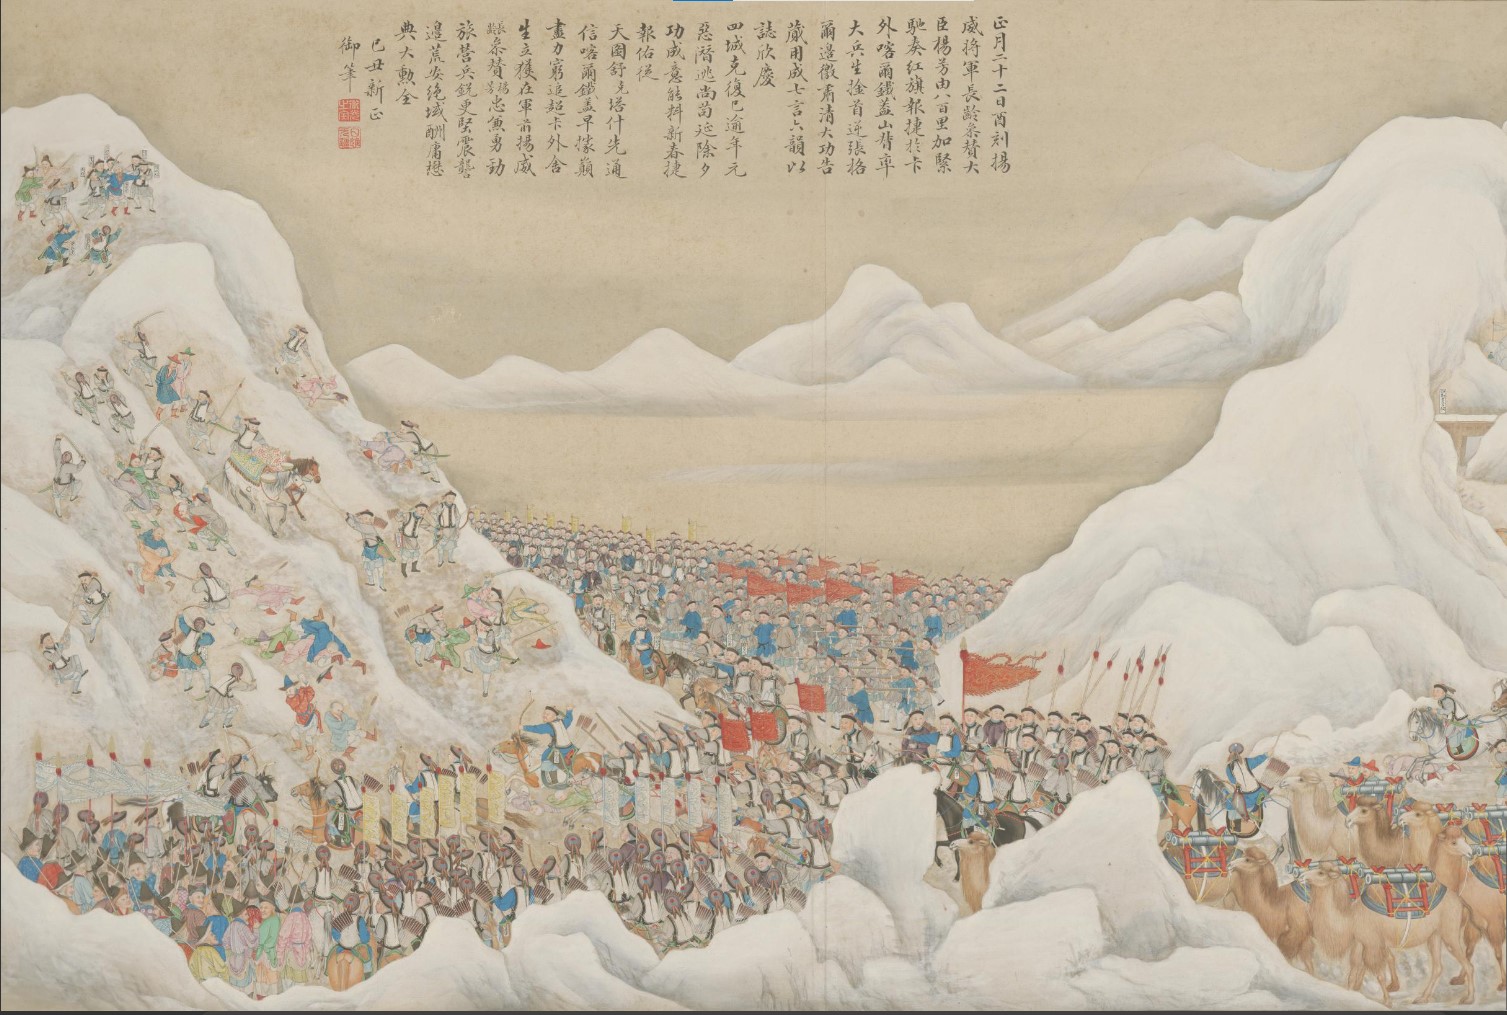 正月二十二日酉刻揚
威將軍長齡叅贊大
臣楊芳由八百里加緊
馳奏紅旗報捷於卡
外喀爾鐵蓋山脊率
大兵生擒首逆張格
爾邊徼肅清大功告
蕆用成七言六韻以
誌欣慶
四城克復已逾年元
惡潛逃尚苟延除夕
功成意能料新春捷
報佑從
天圄舒克塔什先通
信喀爾鐵蓋早懞巔
盡力窮追超卡外舍
生立獲在軍前揚威
叅贊忠兼勇勁
旅營兵銳更堅震讋
邊荒安絶域酬庸懋
典大勲全
己丑新正
御筆